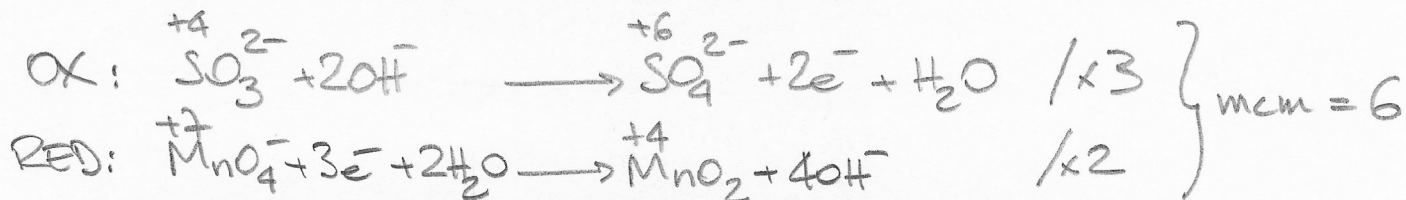 OX: +4 SO₃²⁻ + 2OH⁻ ⟶ +6 SO₄²⁻ + 2e⁻ + H₂O /x3 } mcm = 6
RED: +7 MnO₄⁻ + 3e⁻ + 2H₂O ⟶ +4 MnO₂ + 4OH⁻ /x2